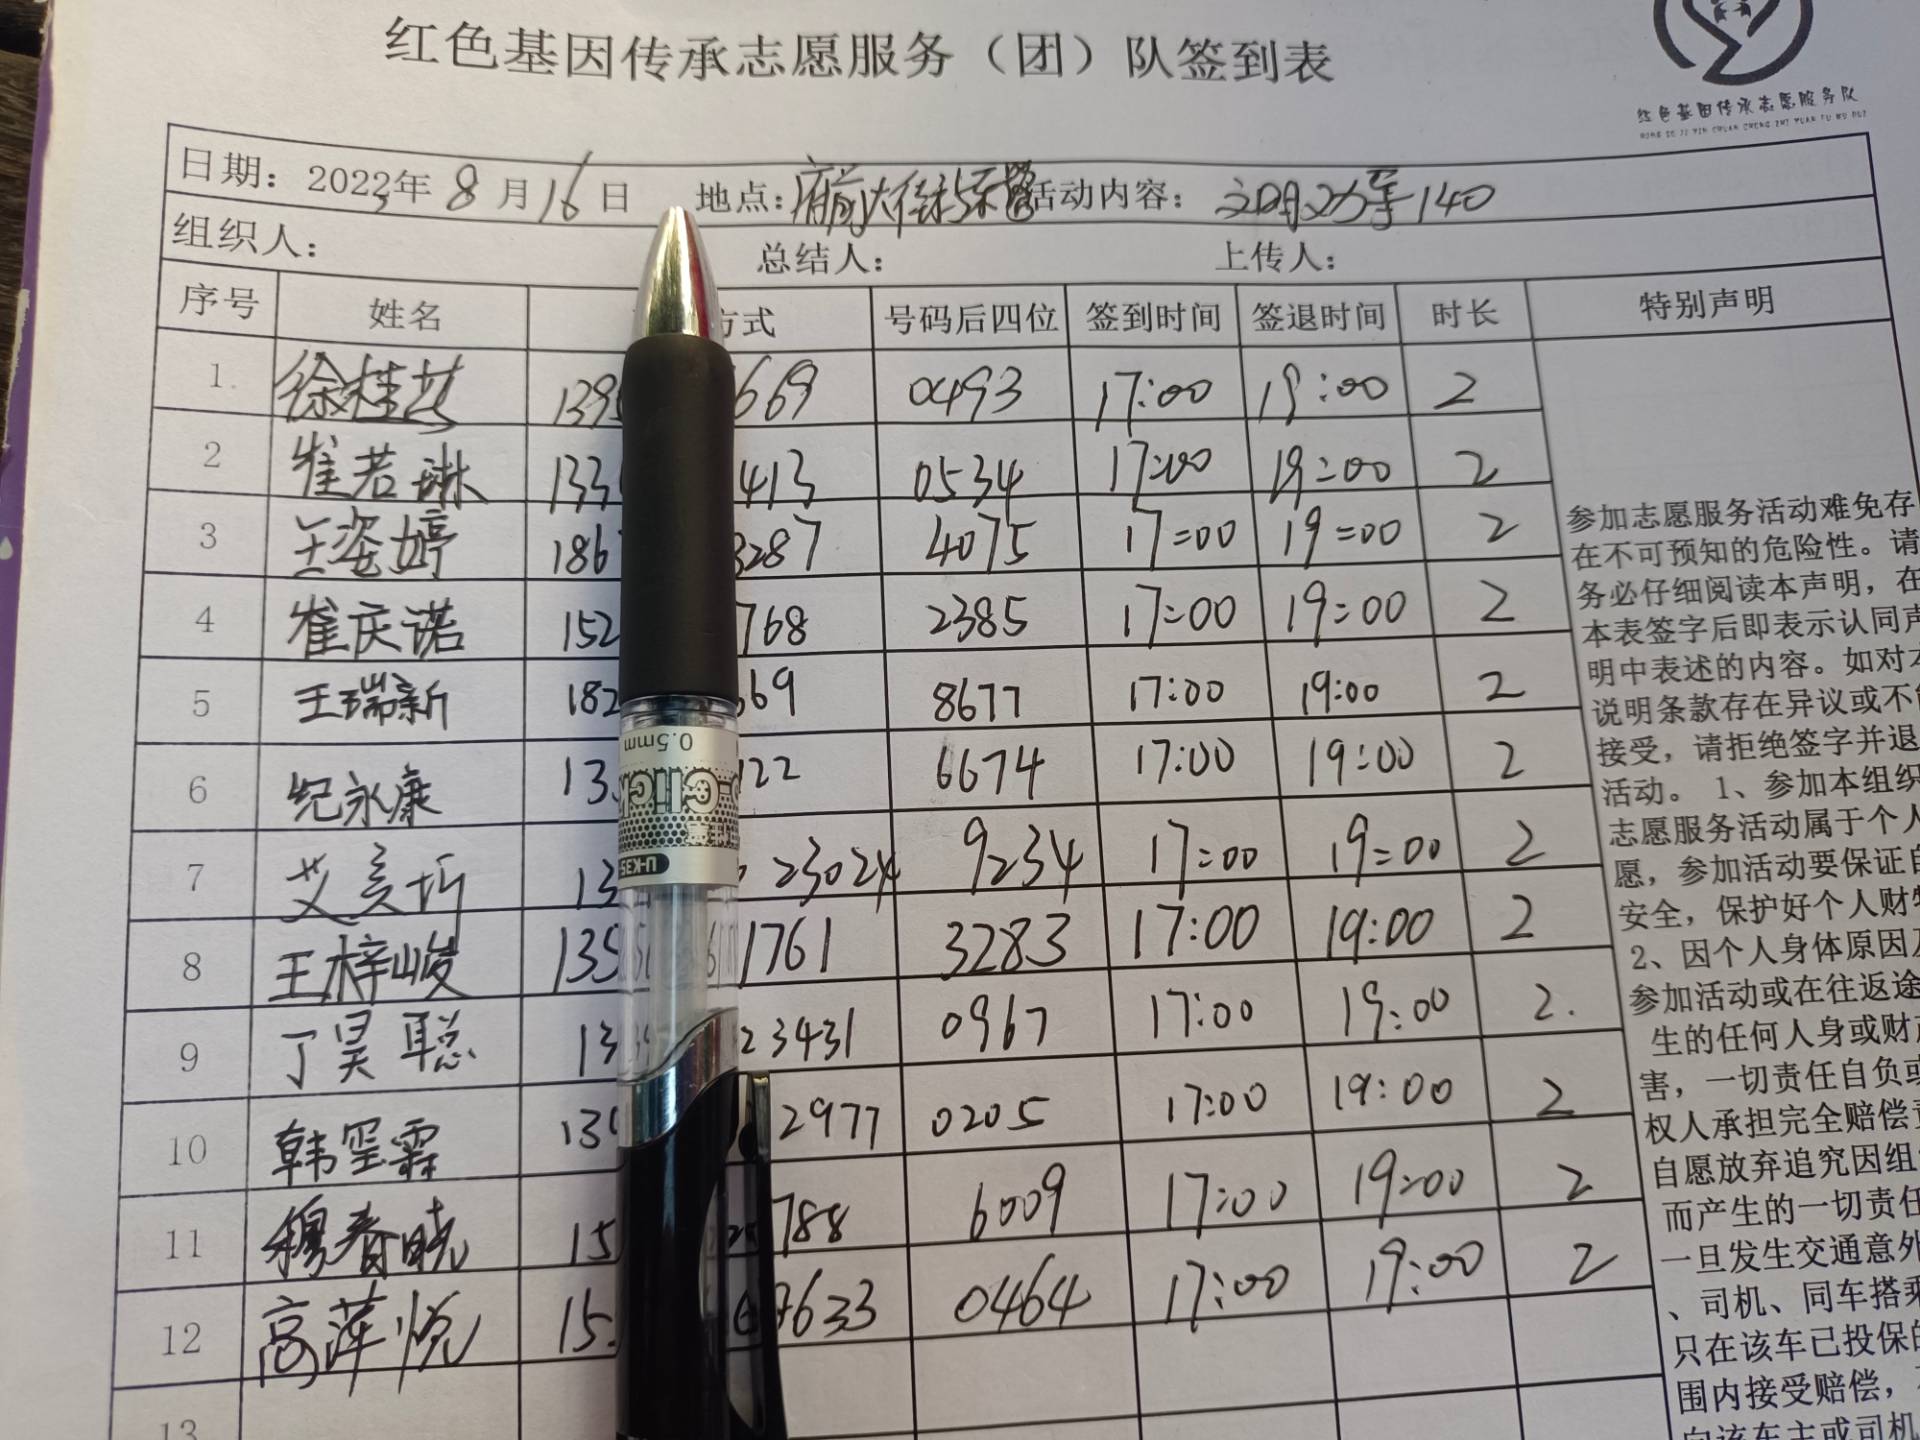 红色基因传承志愿服务（团）队签到表
红色基因传承志愿服务队
HONG SE JI YIN CHUAN CHENG ZHI YUAN FU WU DUI
日期：2023年 8月16日 地点： 活动内容： 文明 140
组织人： 总结人： 上传人：
序号 姓名 方式 号码后四位 签到时间 签退时间 时长 特别声明
1. 徐桂芸 139 669 0493 17:00 19:00 2
2 崔若琳 133 413 0534 17:00 19:00 2
3 王姿婷 186 3287 4075 17:00 19:00 2
4 崔庆诺 152 768 2385 17:00 19:00 2
5 王瑞新 182 669 8677 17:00 19:00 2
6 纪永康 13 122 6674 17:00 19:00 2
7 艾 13 23024 9234 17:00 19:00 2
8 王梓峻 135 1761 3283 17:00 19:00 2
9 丁昊聪 13 23431 0967 17:00 19:00 2.
10 韩罡霖 139 2977 0205 17:00 19:00 2
11 穆春晓 15 788 6009 17:00 19:00 2
12 高萍悦 15 3633 0464 17:00 19:00 2
13
参加志愿服务活动难免存
在不可预知的危险性。请
务必仔细阅读本声明，在
本表签字后即表示认同声
明中表述的内容。如对本
说明条款存在异议或不能
接受，请拒绝签字并退
活动。 1、参加本组织
志愿服务活动属于个人
愿，参加活动要保证自
安全，保护好个人财物
2、因个人身体原因及
参加活动或在往返途
生的任何人身或财产
害，一切责任自负或
权人承担完全赔偿责
自愿放弃追究因组
而产生的一切责任
一旦发生交通意外
、司机、同车搭乘
只在该车已投保的
围内接受赔偿，
向该车主或司机
0.5mm